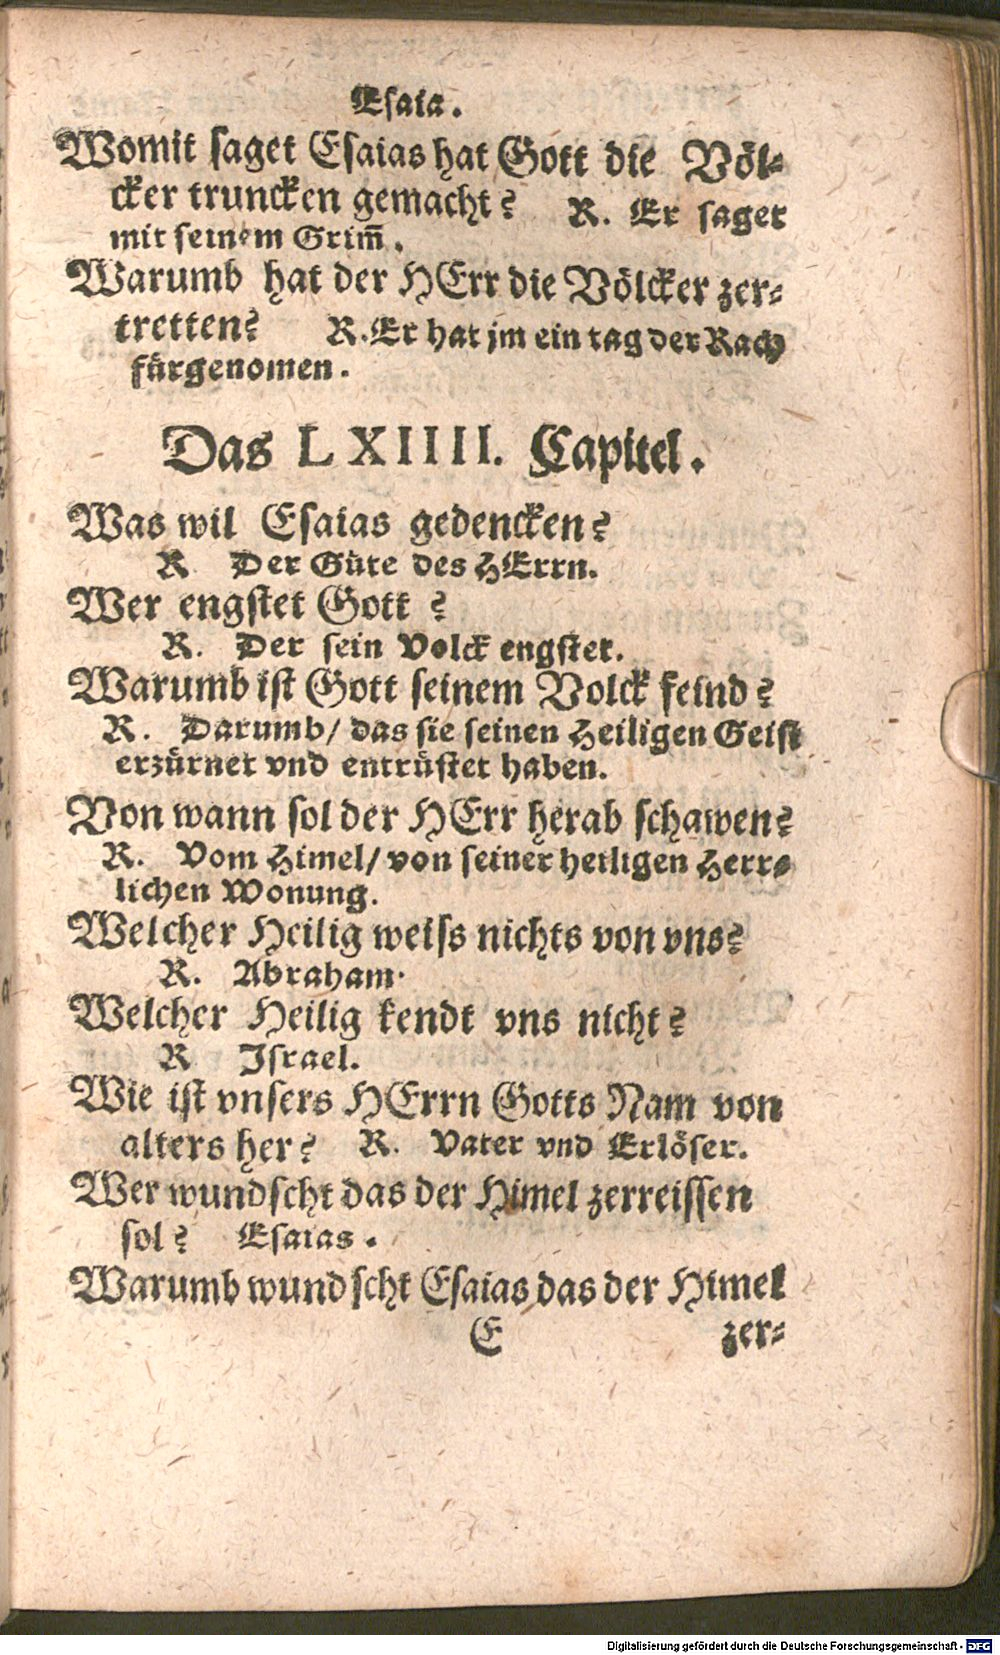 Esaia.
Womit saget Esaias hat Gott die Völ⸗
cker truncken gemacht? R. Er saget
mit seinem Grim̃.
Warumb hat der HErr die Völcker zer⸗
tretten? R. Er hat jm ein tag der Rach
fürgenomen.
Das LXIIII. Capitel.
Was wil Esaias gedencken?
R Der Güte des HErrn.
Wer engstet Gott?
R. Der sein Volck engstet.
Warumb ist Gott seinem Volck feind?
R. Darumb/ das sie seinen Heiligen Geist
erzürnet vnd entrüstet haben.
Von wann sol der HErr herab schawen?
R. Vom Himel/ von seiner heiligen Herr⸗
lichen Wonung.
Welcher Heilig weiss nichts von vns?
R. Abraham.
Welcher Heilig kendt vns nicht?
R Israel.
Wie ist vnsers HErrn Gotts Nam von
alters her? R. Vater vnd Erlöser.
Wer wundscht das der Himel zerreissen
sol? Esaias.
Warumb wundscht Esaias das der Himel
E zer⸗
Digitalisierung gefördert durch die Deutsche Forschungsgemeinschaft - DFG